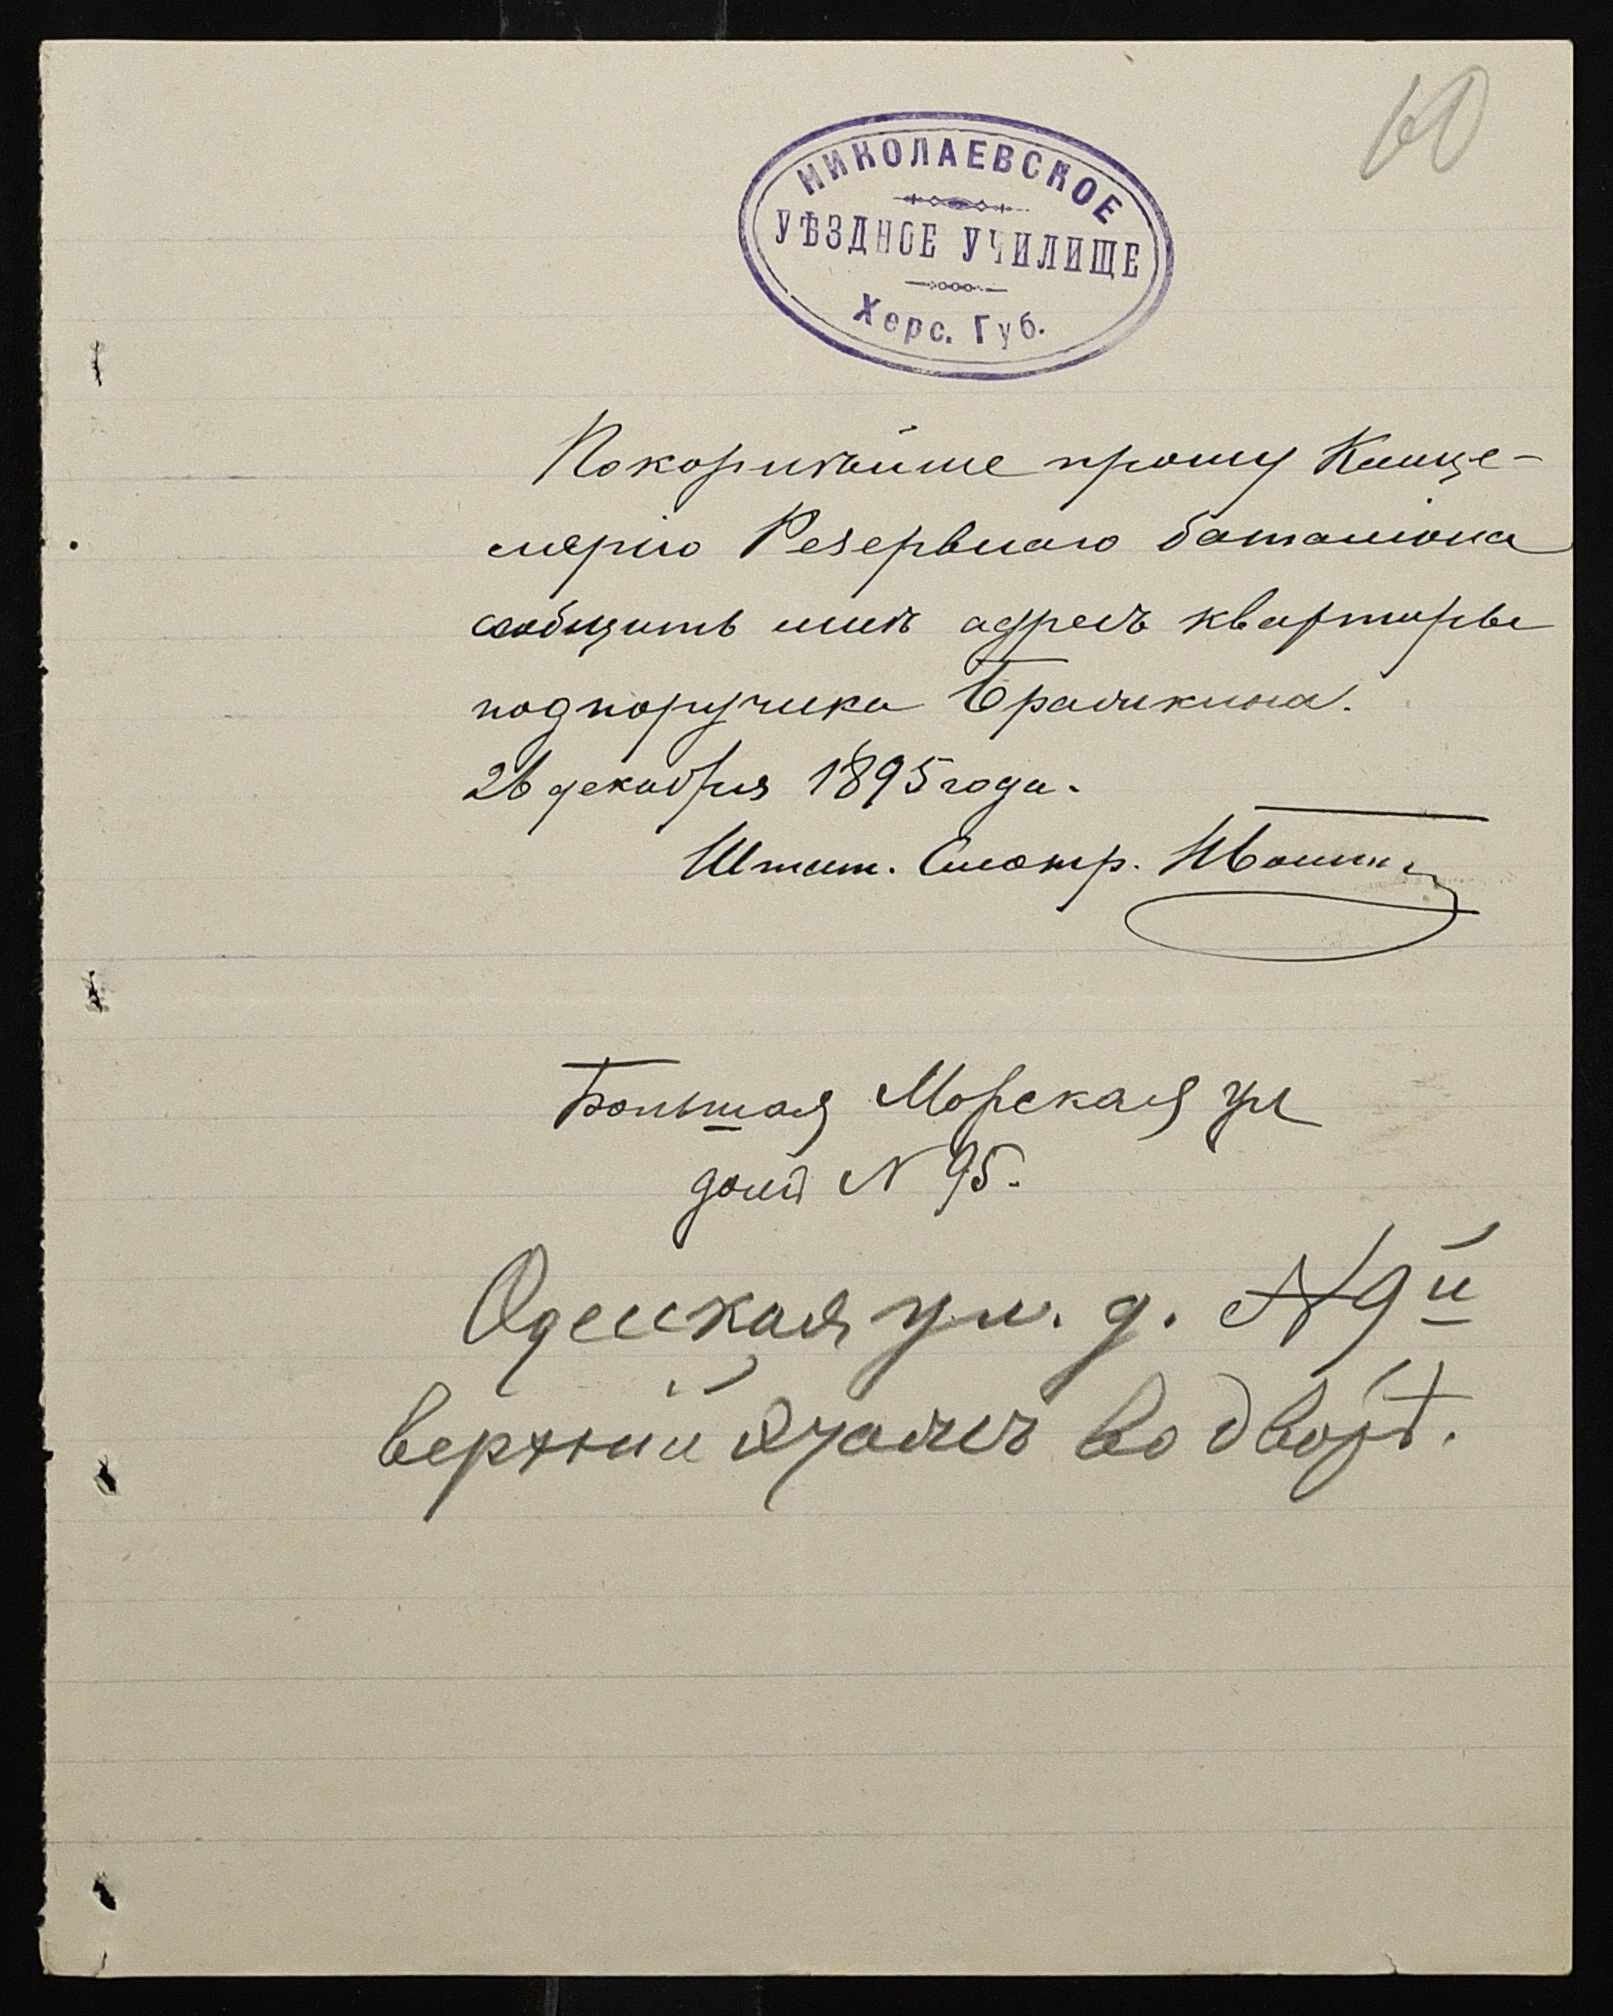 60
НИКОЛАЕВСКОЕ
УѢЗДНОЕ УЧИЛИЩЕ
Херс. Губ.
Покорнѣйше прошу Канце-
лярію Резервнаго баталіона
сообщить мнѣ адресъ квартиры
подпоручика
26 декабря 1895 года.
Штат. Смотр.
Большая Морская ул
домъ N 95.
Одесская ул. д. N 9й
верхній этажъ во дворѣ.